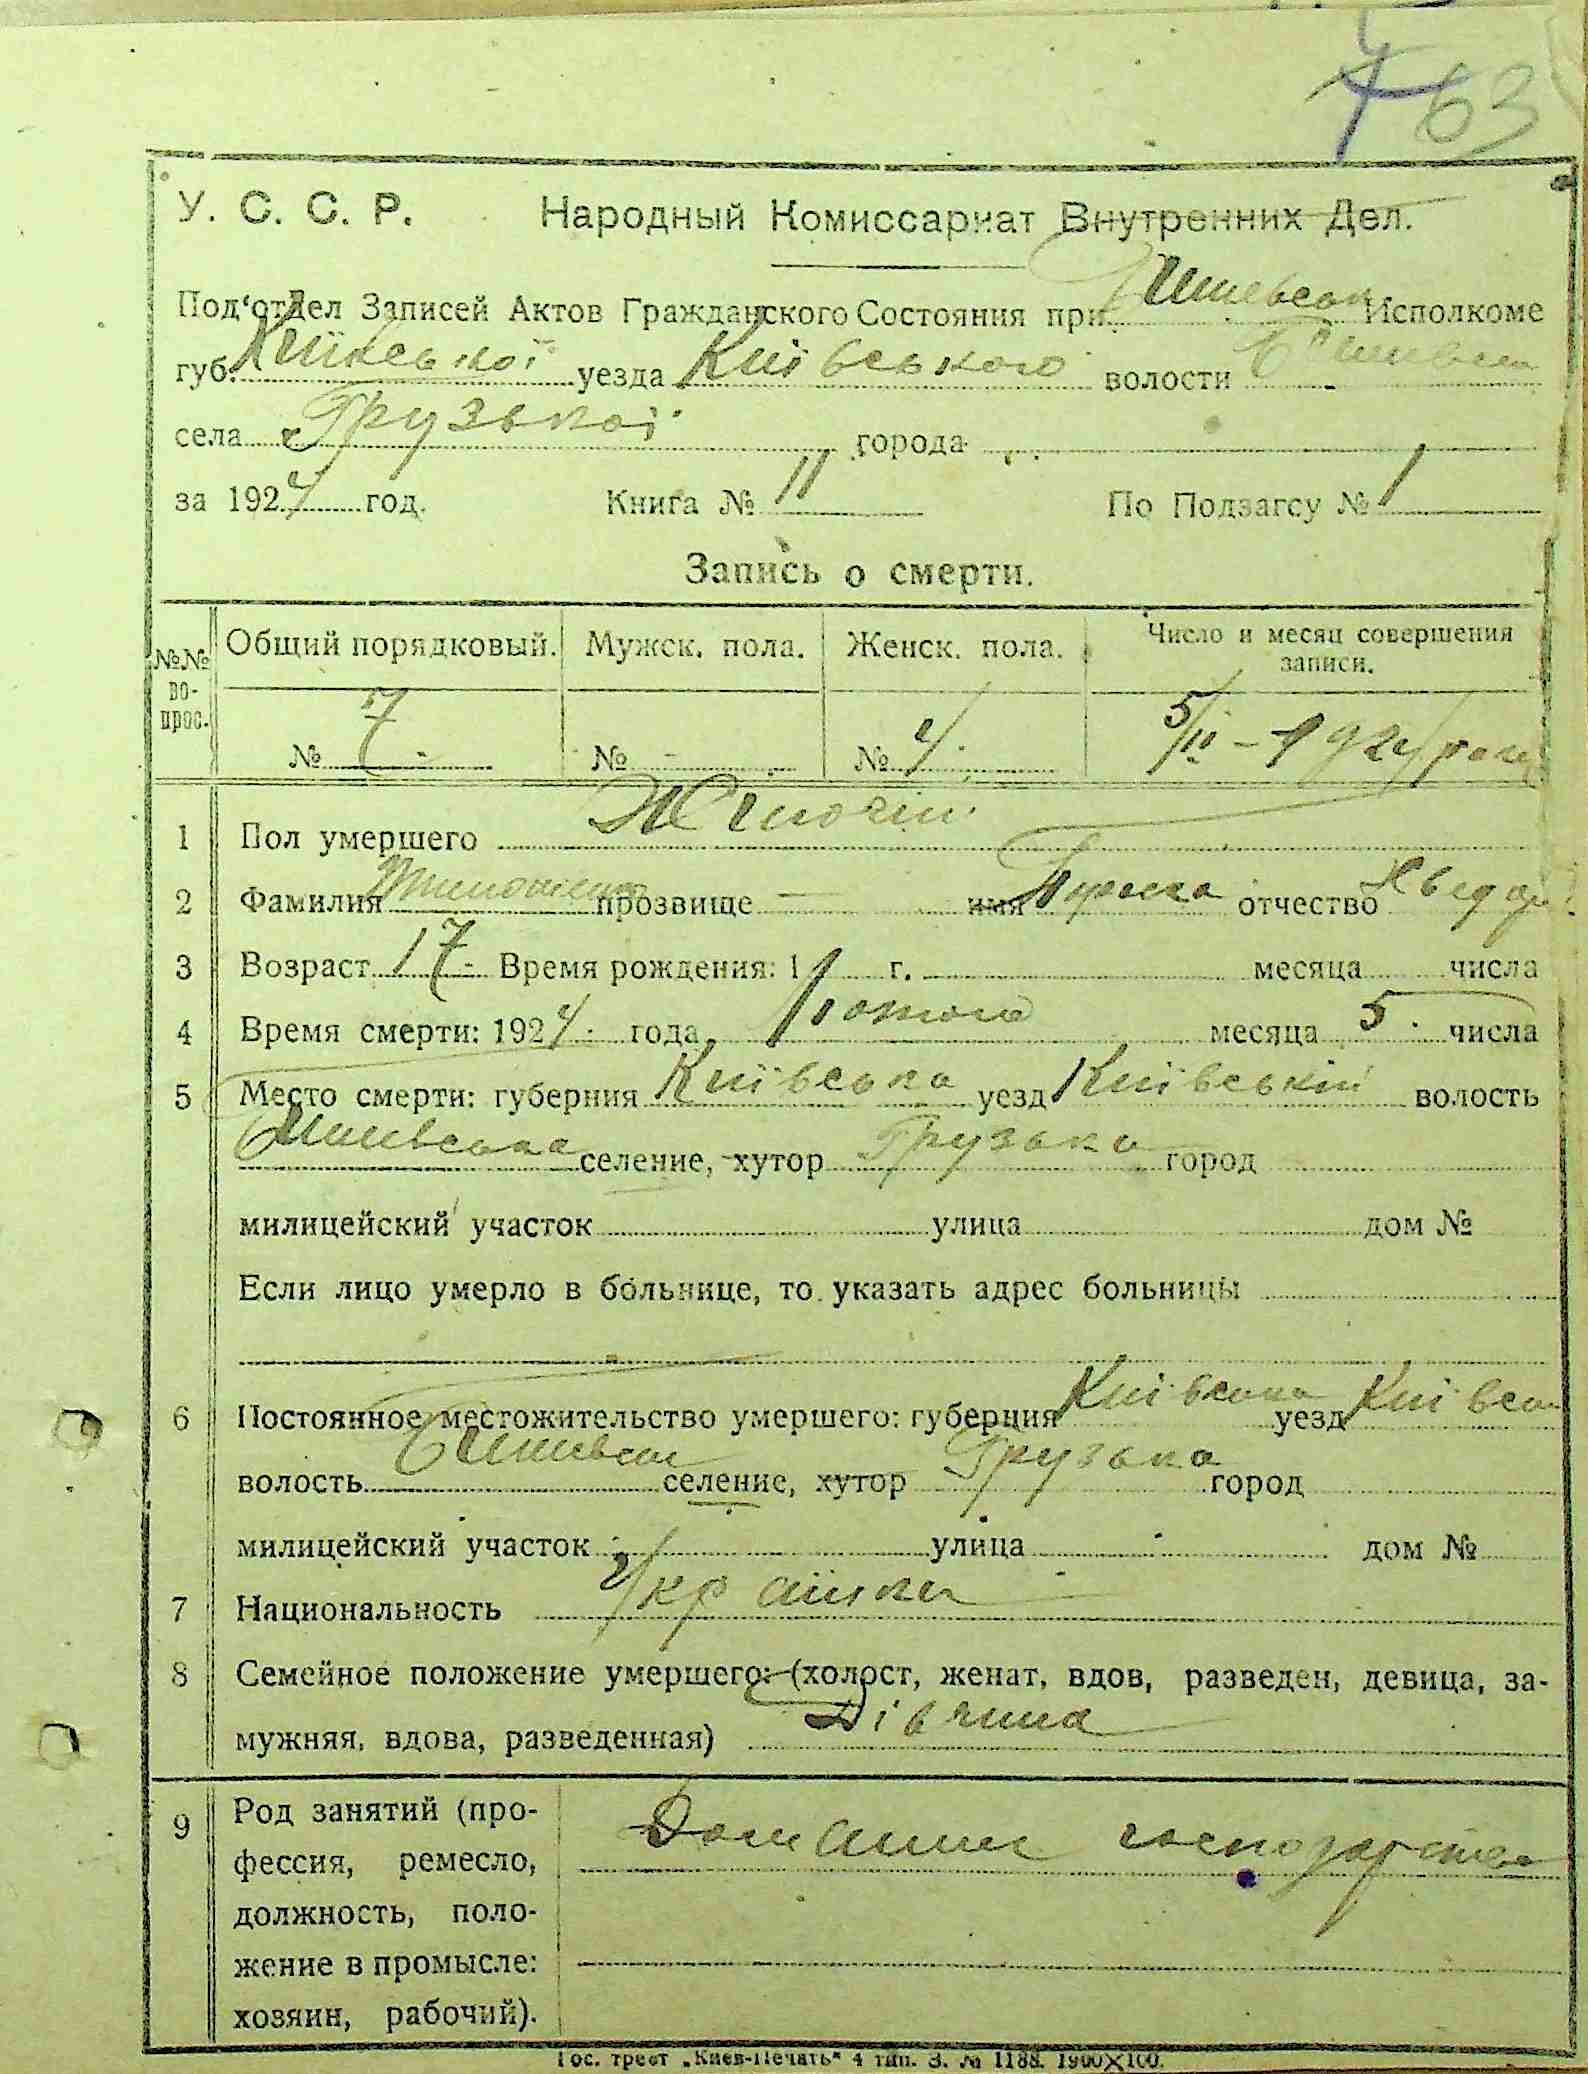 63
У. С. С. Р. Народный Комиссариат Внутренних Дел.
Под'отдел Записей Актов Гражданского Состояния при Исполкоме
губ. Київської уезда Київського волости
села Грузької города
за 1924 год. Книга № 11 По Подзагсу № 1
Запись о смерти.
№№ во-прос. Общий порядковый. Мужск. пола. Женск. пола. Число и месяц совершения записи.
№ 7 - № - № 4. 5/II - 1924 року
1 Пол умершего Жіночій
2 Фамилия прозвище — имя отчество
3 Возраст 17 - Время рождения: 1 г. месяца числа
4 Время смерти: 1924. года Лютого месяца 5. числа
5 Место смерти: губерния Київська уезд Київський волость
селение, хутор Грузька город
милицейский участок улица дом №
Если лицо умерло в больнице, то указать адрес больницы
6 Постоянное местожительство умершего: губерния Київська уезд Київськ
волость селение, хутор Грузька город
милицейский участок улица дом №
7 Национальность Українка
8 Семейное положение умершего: (холост, женат, вдов, разведен, девица, за-
мужняя, вдова, разведенная) Дівчина
9 Род занятий (про-
фессия, ремесло, Домашнє господарство
должность, поло-
жение в промысле:
хозяин, рабочий).
Гос. трест „Киев-Печать" 4 тип. З. № 1188. 1900×100.